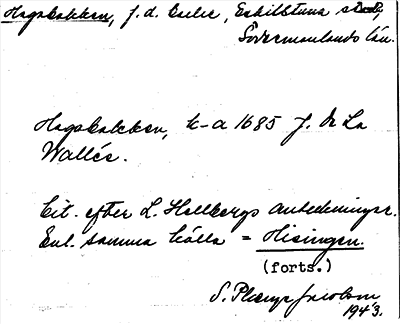 Hagabacken, f. d. Carlie, Eskilstuna stad,
Södermanlands län.
Hagabacken, k-a 1685 J. De La
Wallée.
Cit. efter L. Hallbergs anteckningar.
Enl. samma källa = Hisingen.
(forts.)
S. Pleiyt Jacobson
1943.